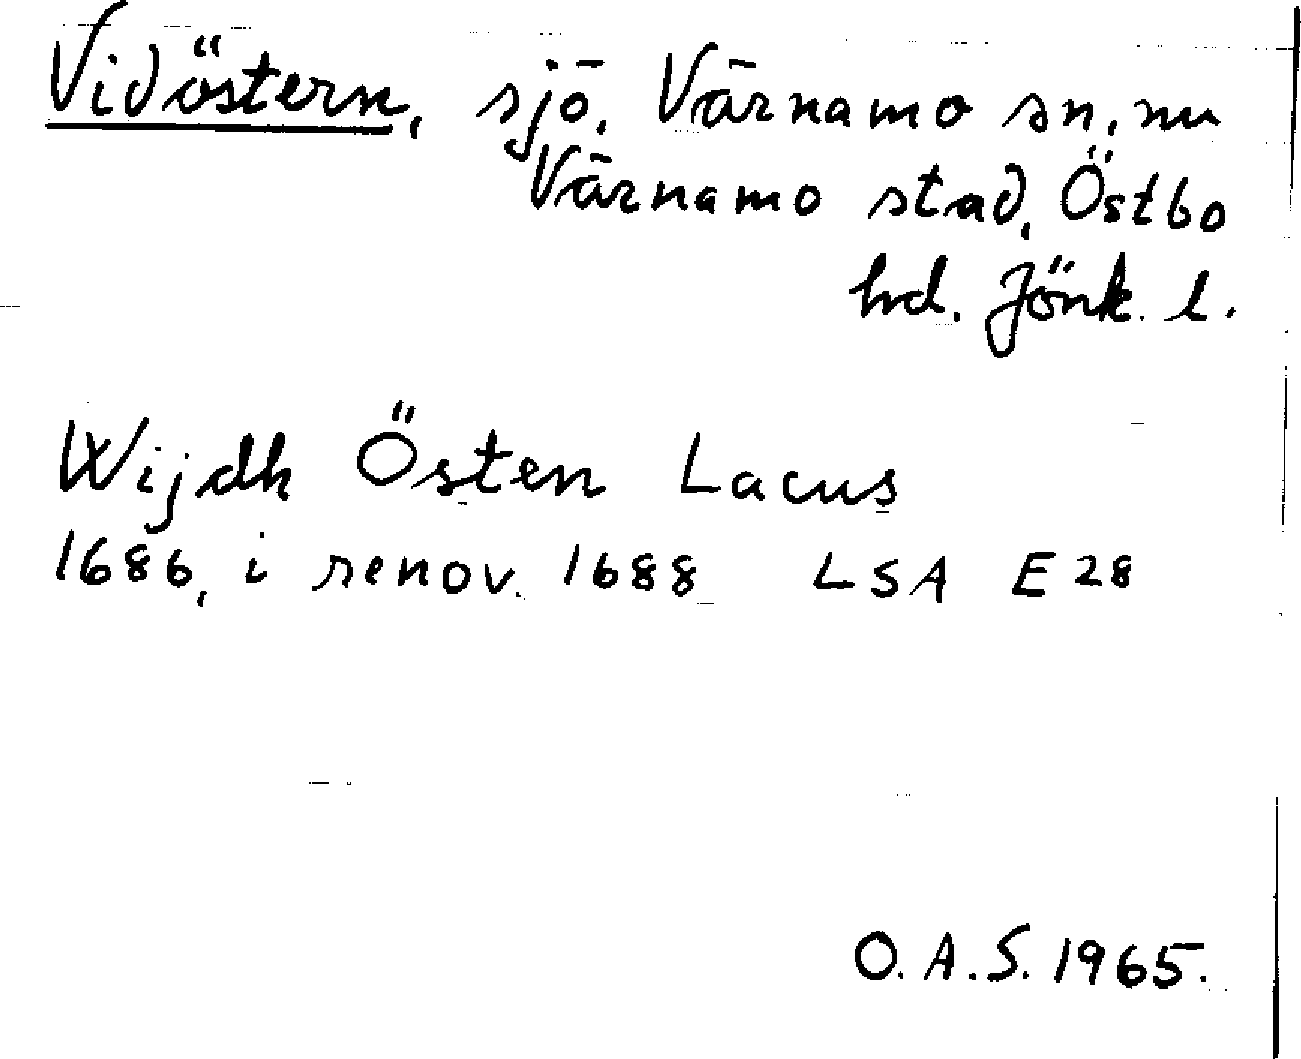 Vidöstern, sjö, Värnamo sn, nu
Värnamo stad, Östbo
hd. Jönk. l.
Wijdh Östen Lacus
1686, i renov. 1688 LSA E 28
O. A. S. 1965.